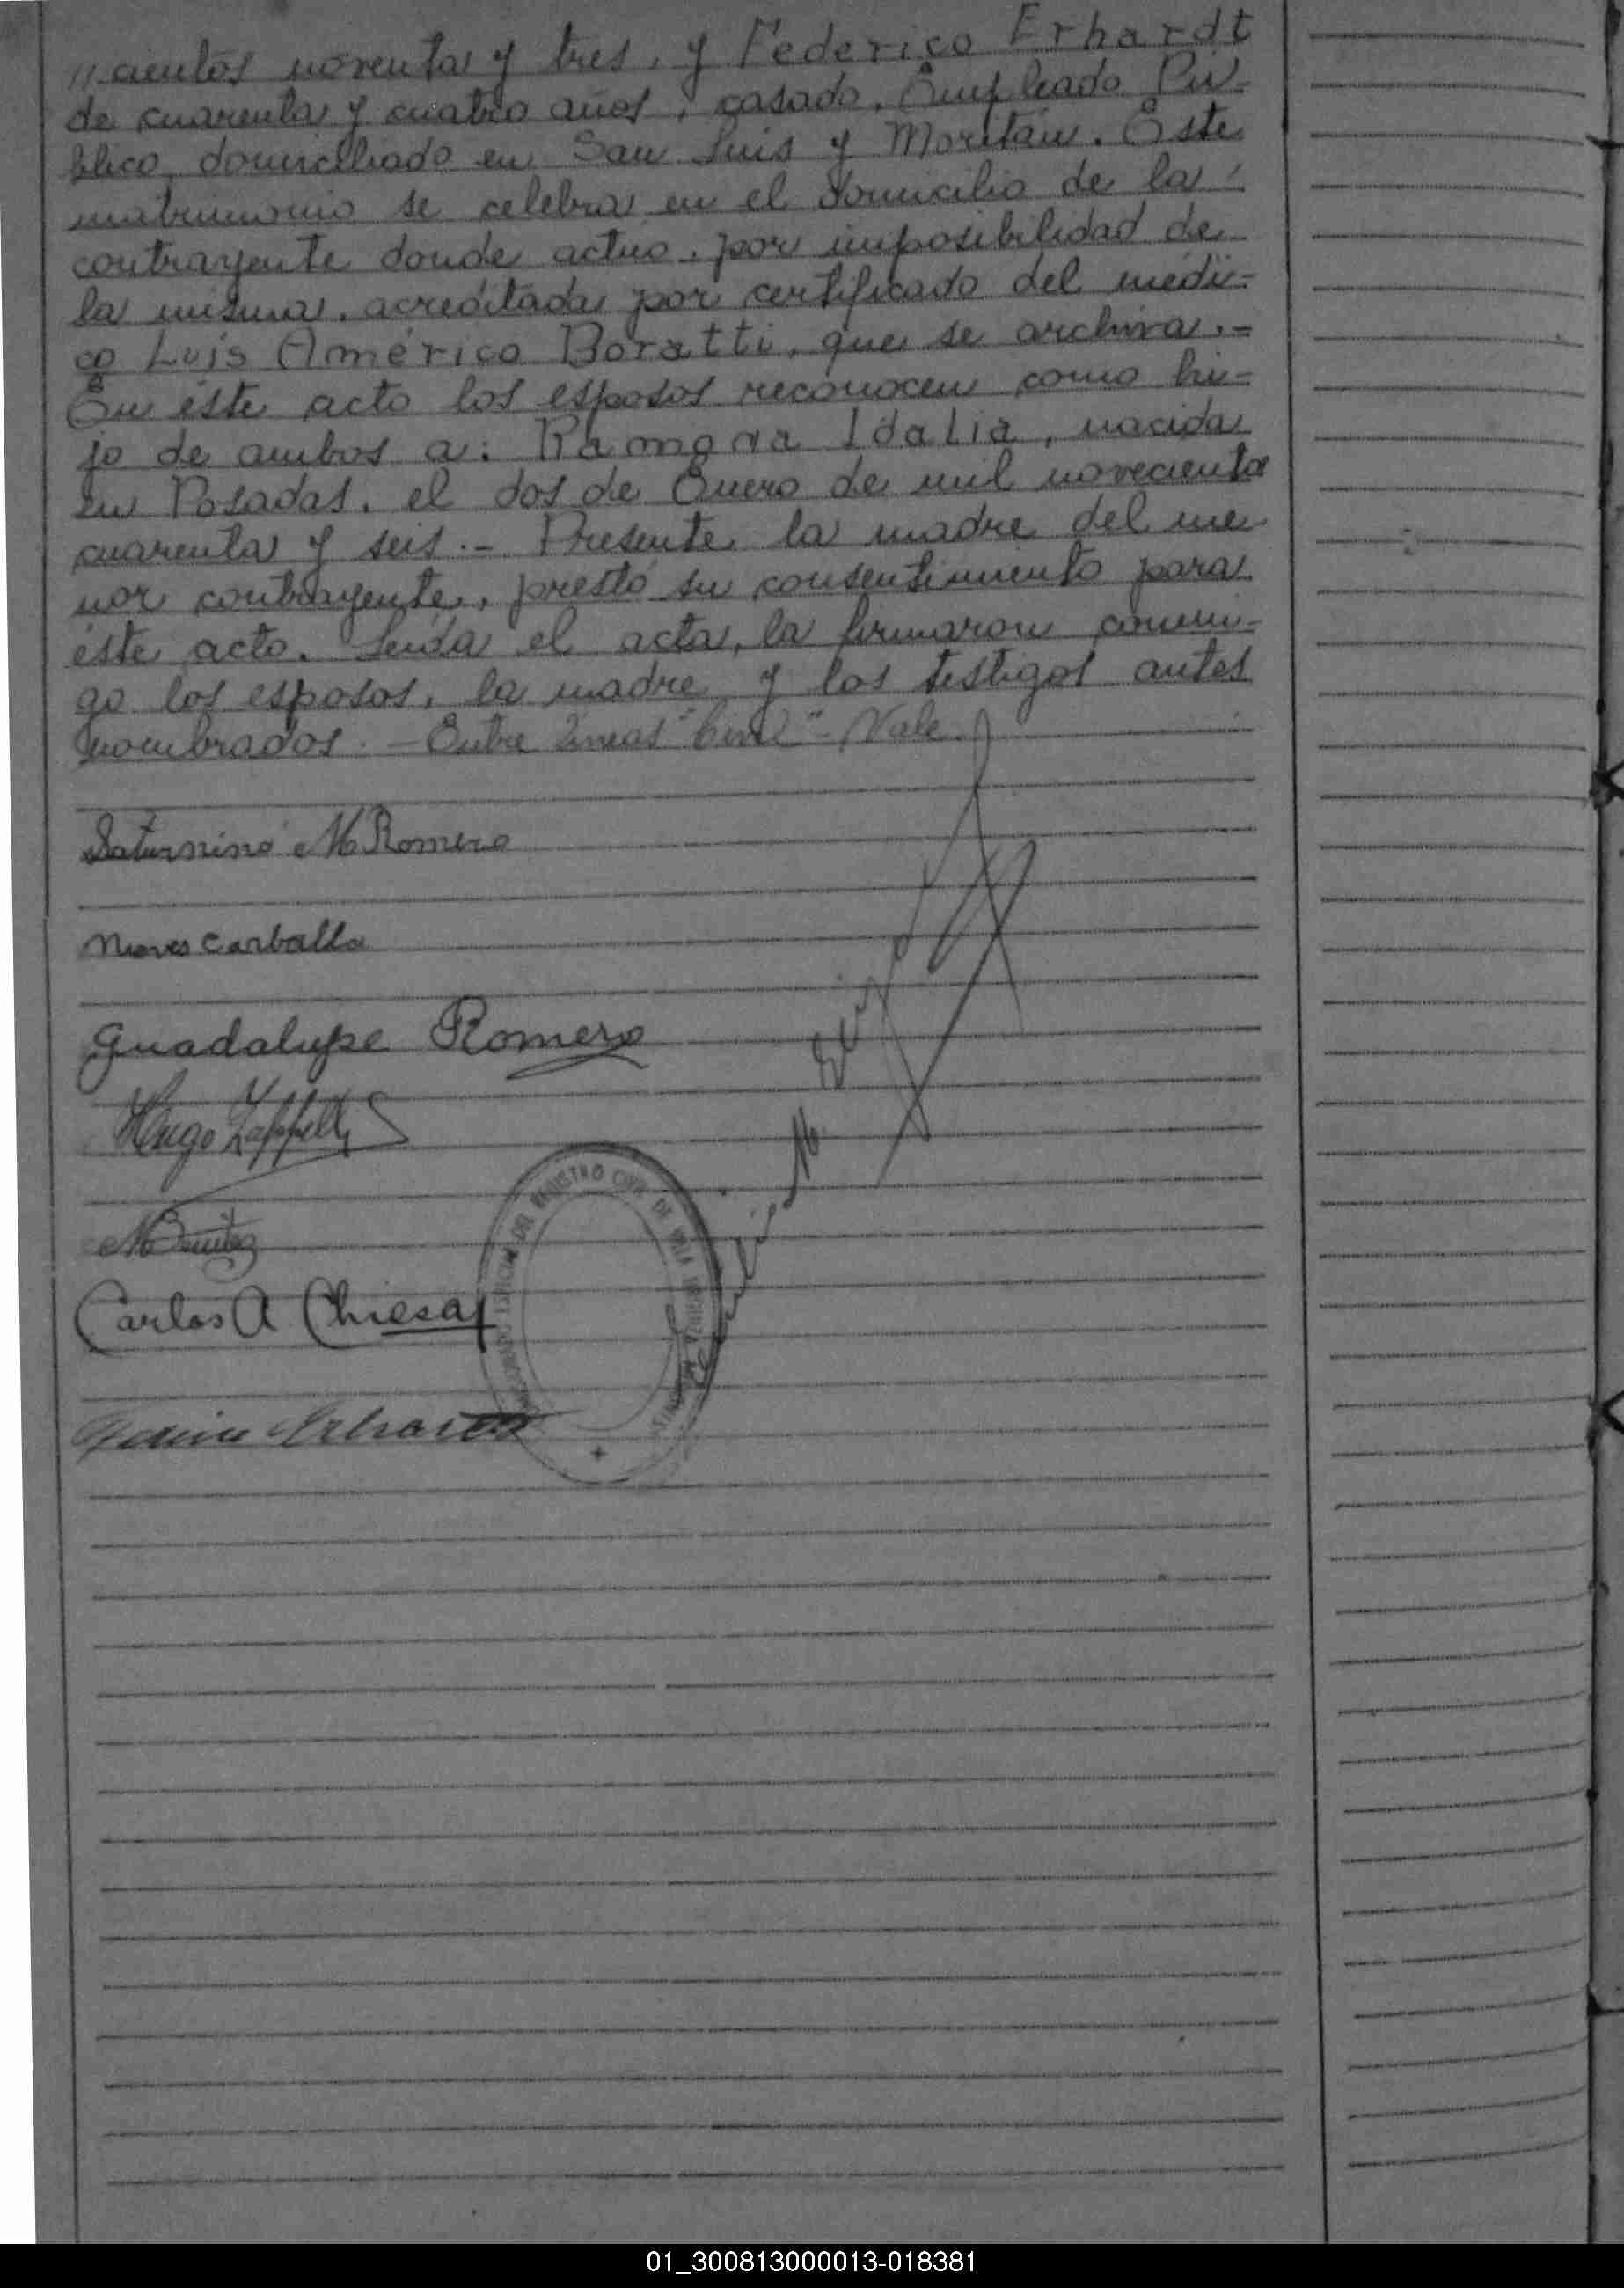 //cientos noventa y tres, y Federico Erhardt
de cuarenta y cuatro años, casado, Empleado Pú-
blico, domiciliado en San Luis y Moritán. Este
matrimonio se celebra en el domicilio de la
contrayente donde actúo, por imposibilidad de
la misma, acreditada por certificado del médi-
co Luis Américo Boratti, que se archiva.-
En éste acto los esposos reconocen como hi-
jo de ambos a: Ramona Idalia, nacida
en Posadas, el dos de Enero de mil novecientos
cuarenta y seis.- Presente la madre del me-
nor contrayente, prestó su consentimiento para
éste acto. Leída el acta, la firmaron conmi-
go los esposos, la madre y los testigos antes
nombrados.- Entre líneas "Civil"- Vale.
Saturnino M Romero
Nieves Carballo
Guadalupe Romero
Hugo Zappelli
M Benitez
Carlos A Chiesa
Erhardt
REGISTRO CIVIL DE
01_300813000013-018381